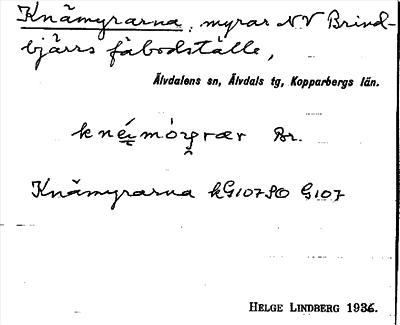 Knämyrarna, myrar N.V Brind-
bjärs fäbodställe,
Älvdalens sn, Älvdals tg, Kopparbergs län.
Br.
Knämyrarna kG10780 G107
HELGE LINDBERG 1936.